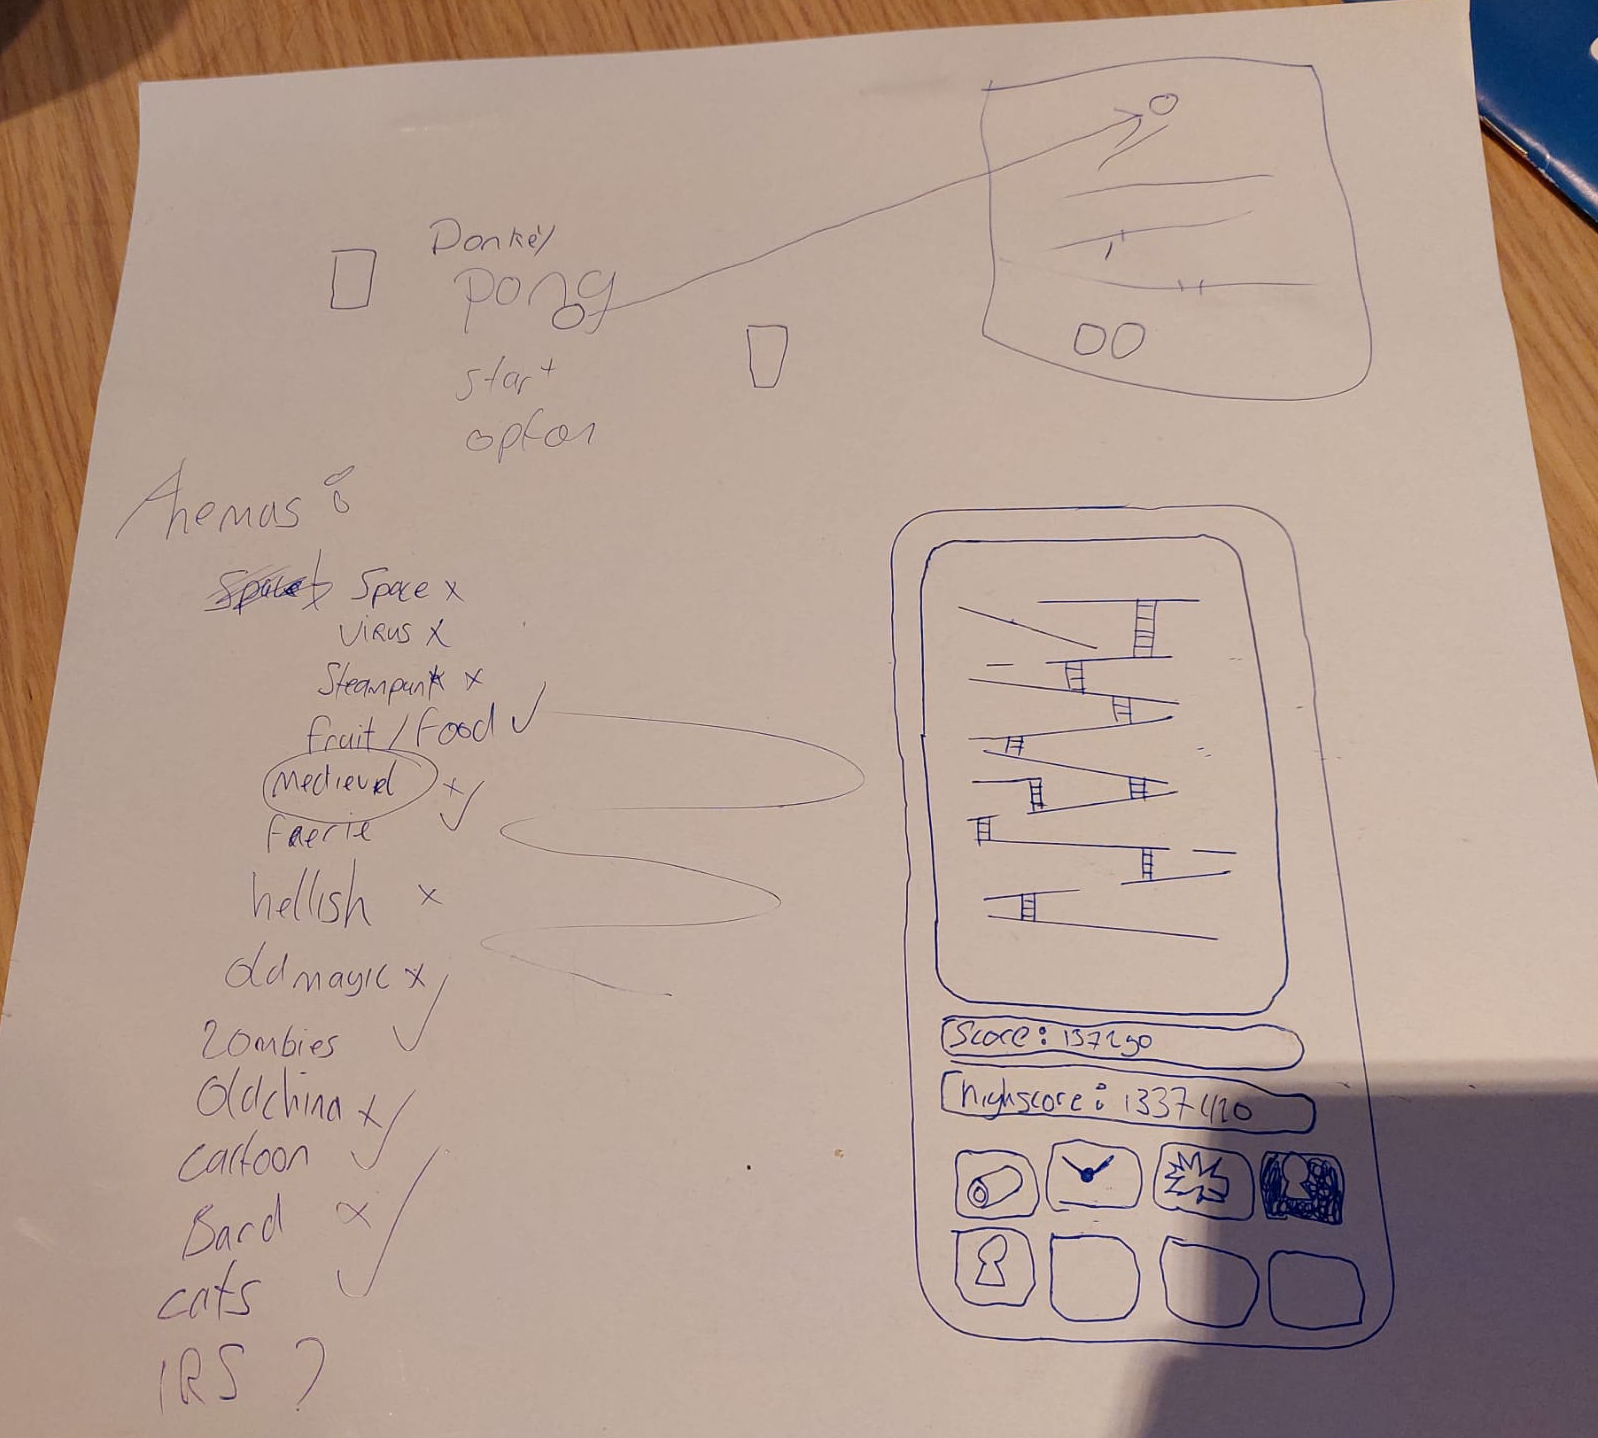 Donkey
pong
start
option
Themas:
Space
Space x
Virus x
Steampunk x
fruit / food ✓
Medieval x
faerie ✓
hellish x
old magic x
Zombies ✓
Old china x
cartoon ✓
Bard x
cats ✓
IRS ?
Score: 137250
highscore: 1337420